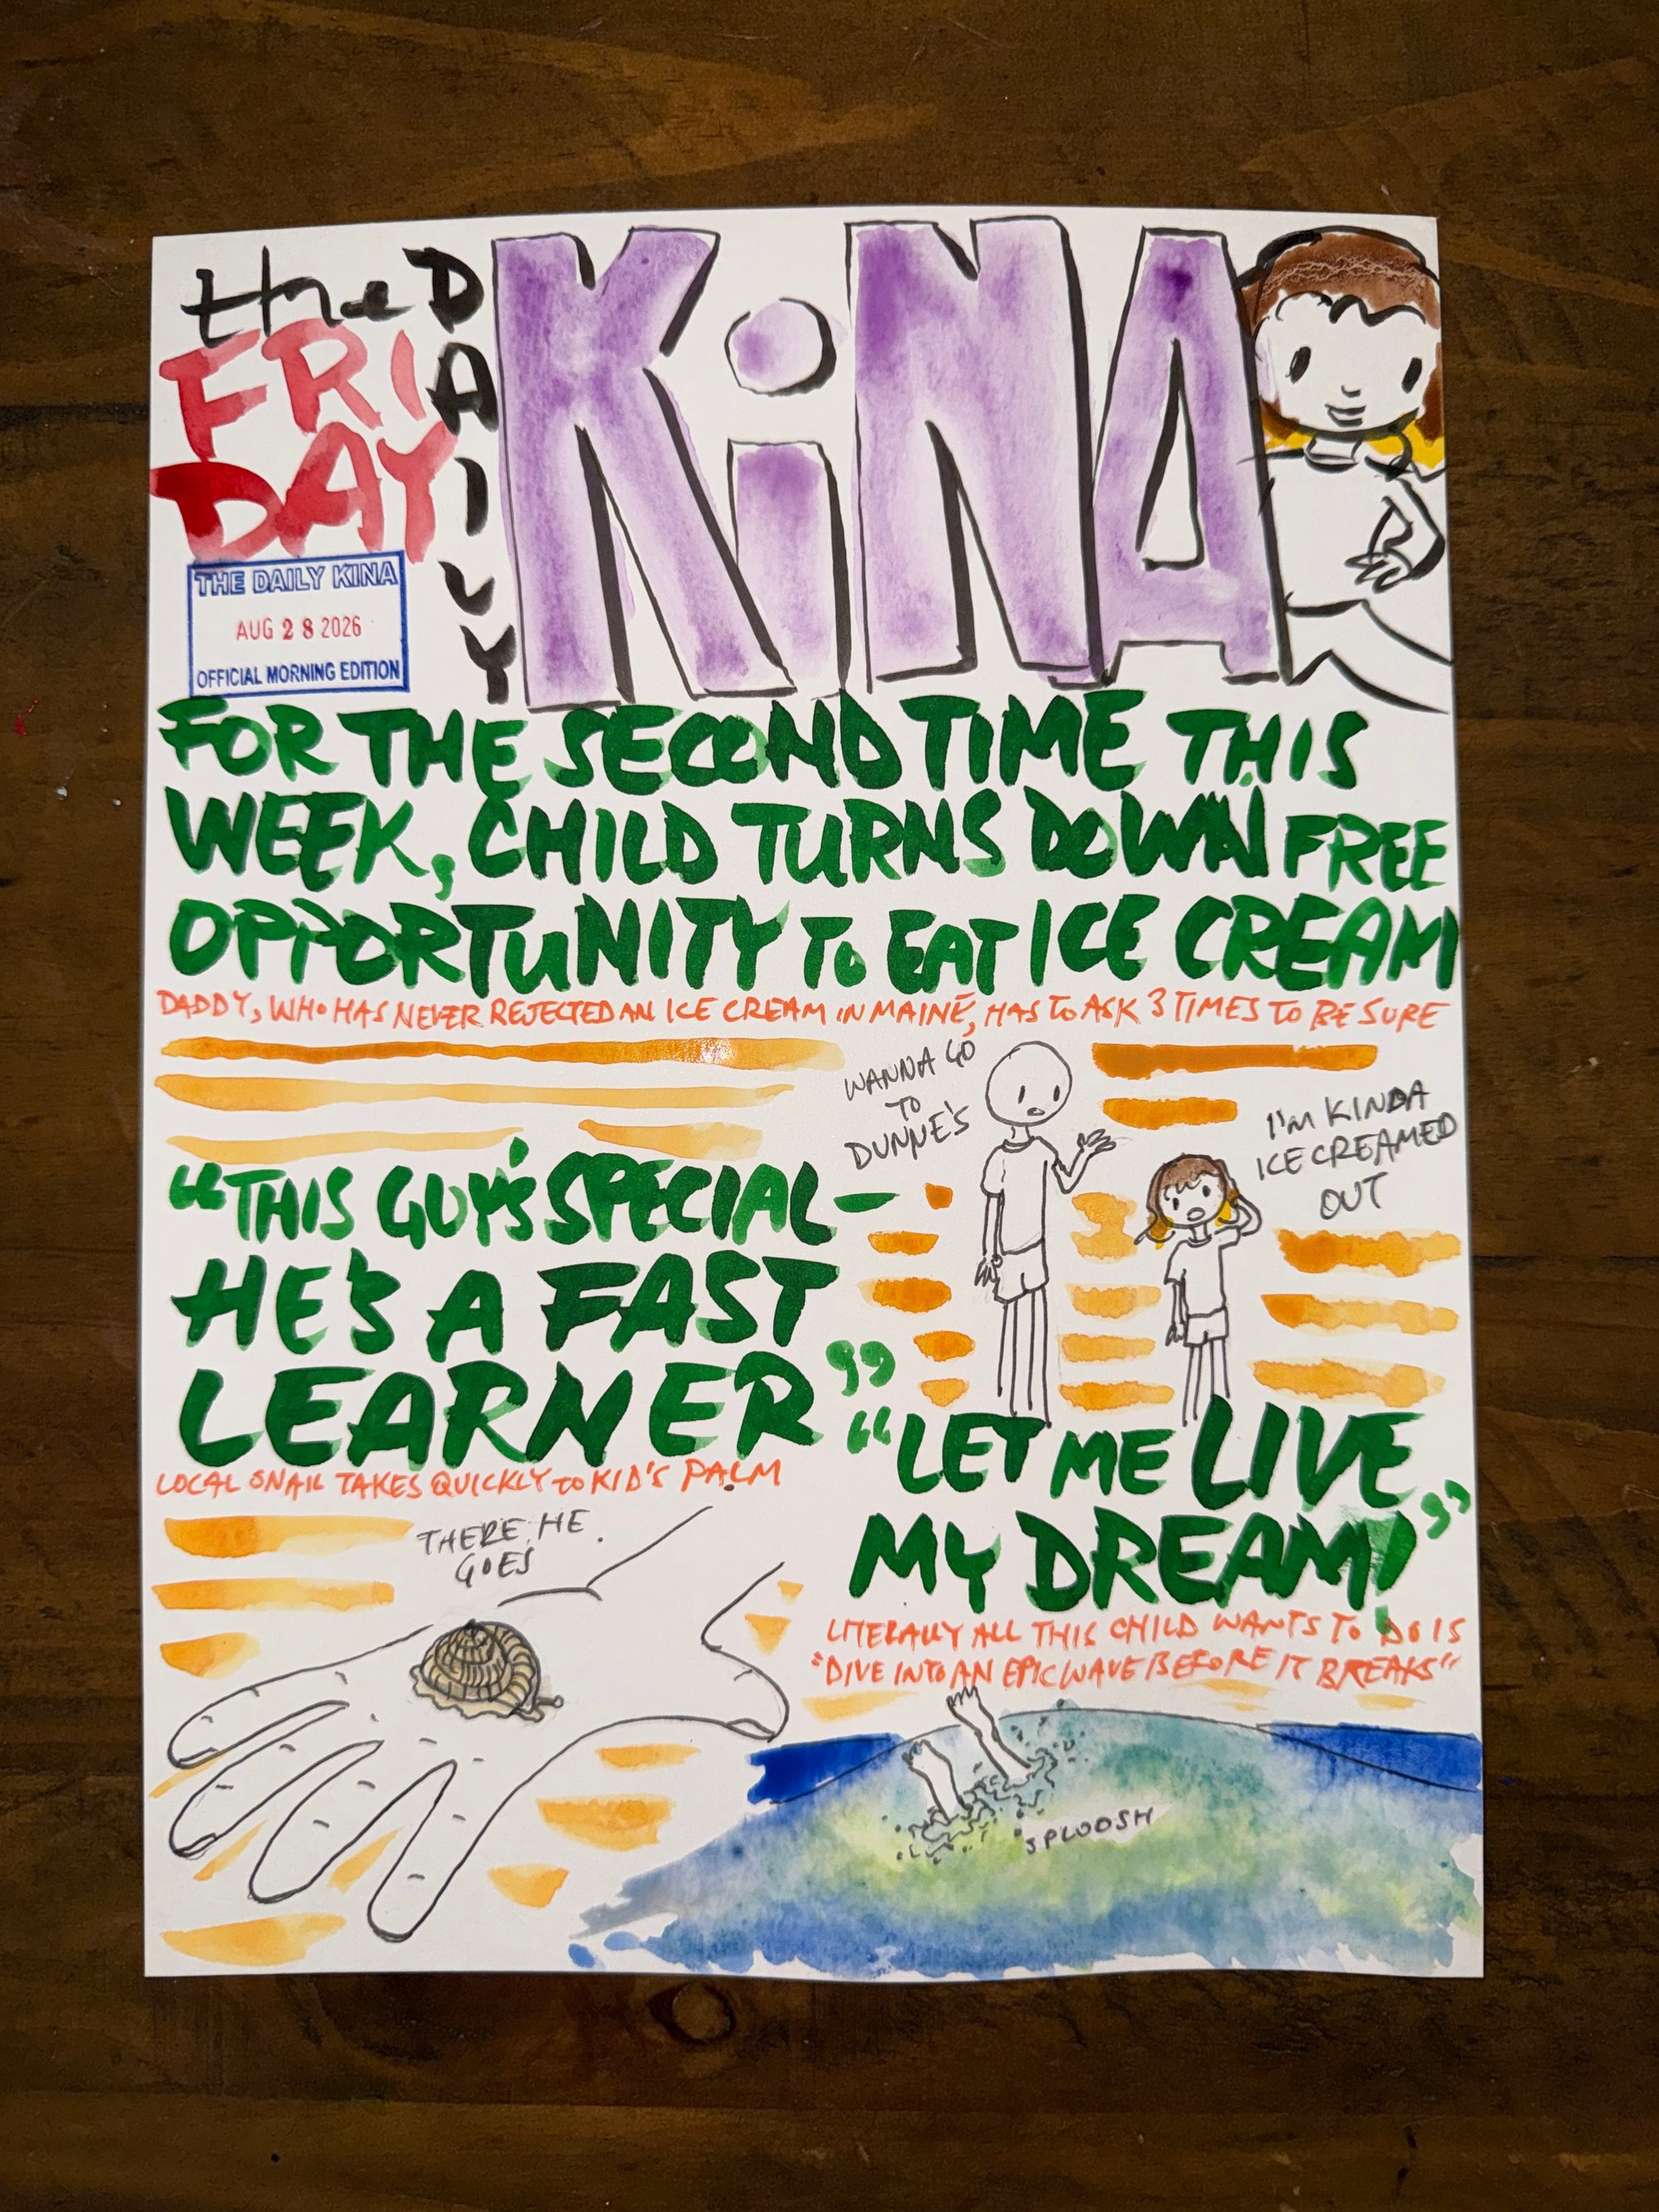 the DAILY KiNA
FRI
DAY
THE DAILY KINA
AUG 28 2026
OFFICIAL MORNING EDITION
FOR THE SECOND TIME THIS
WEEK, CHILD TURNS DOWN FREE
OPPORTUNITY To EAT ICE CREAM
DADDY, WHO HAS NEVER REJECTED AN ICE CREAM IN MAINE, HAS To ASK 3 TIMES TO BE SURE
WANNA GO
TO
DUNNE'S
I'M KINDA
ICE CREAMED
OUT
"THIS GUY'S SPECIAL—
HE'S A FAST
LEARNER"
LOCAL SNAIL TAKES QUICKLY To KID'S PALM
THERE HE
GOES
"LET ME LIVE
MY DREAM!"
LITERALLY ALL THIS CHILD WANTS To Do IS
"DIVE INTO AN EPIC WAVE BEFORE IT BREAKS"
SPLOOSH